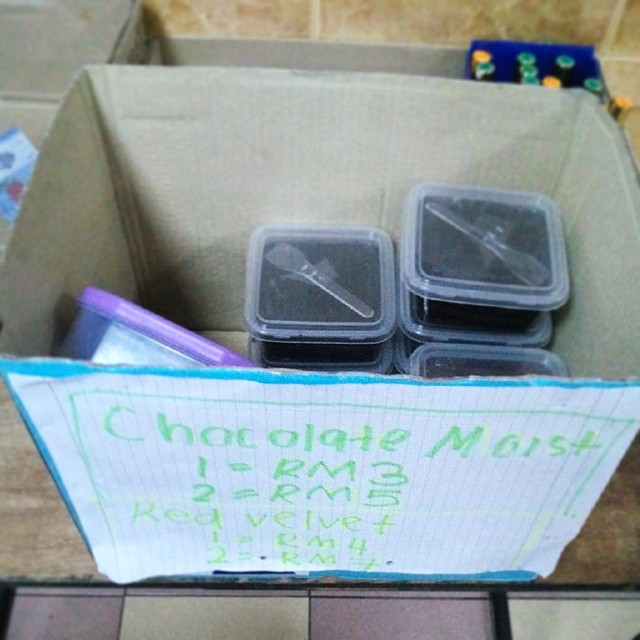 Chocolate Moist
1 = RM 3
2 = RM 5
Red velvet
1 = RM 4
2 = RM 7